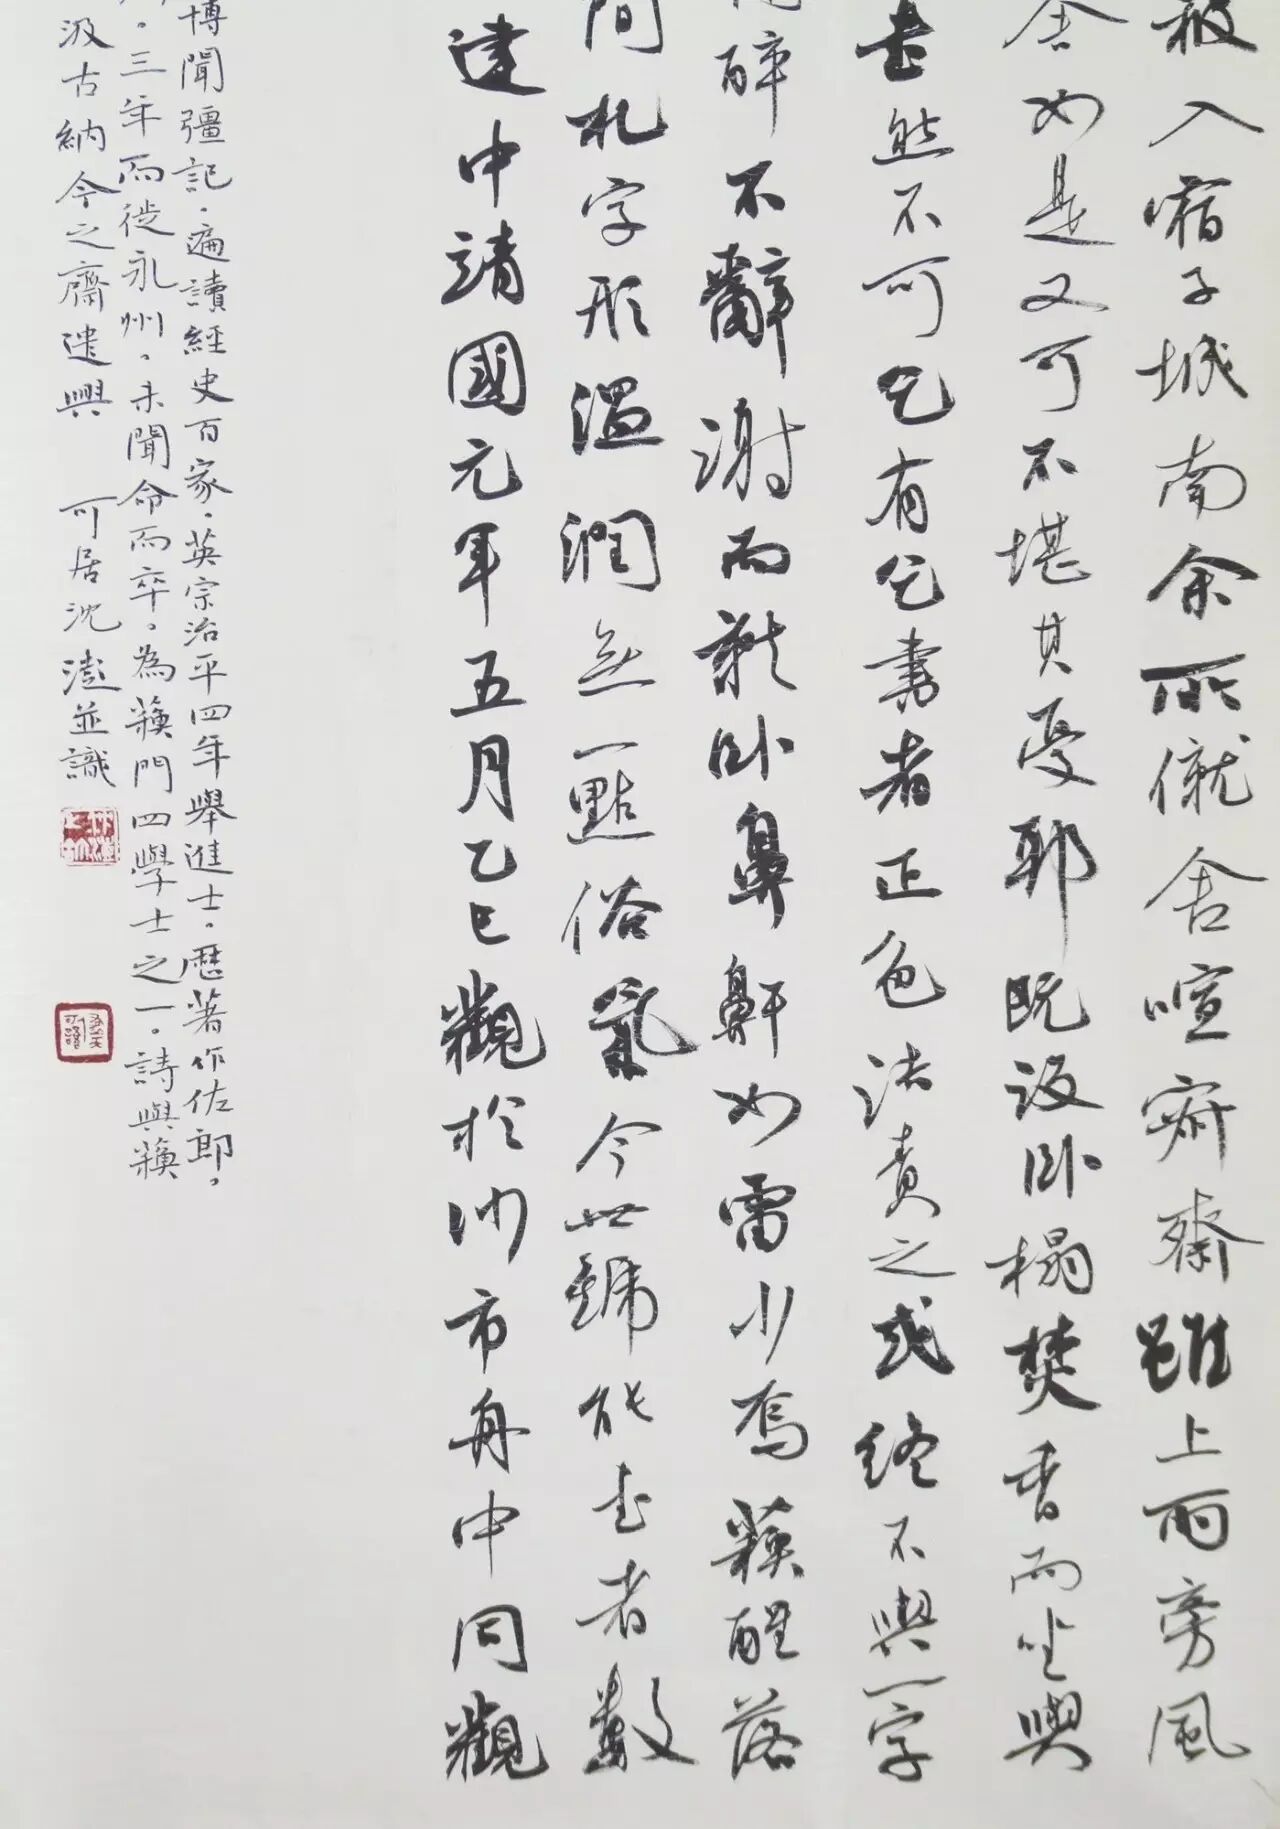 被入宿子城南余所僦舍喧寂齋雖上雨旁風
舍如是又可不堪其憂耶既設臥榻焚香而坐與
書然不可乞有乞書者正色詰責之或終不與一字
醉不辭謝而就臥鼻鼾如雷少焉蘇醒落
簡札字形溫潤無一點俗氣今世號能書者數
建中靖國元年五月乙巳觀於沙市舟中同觀
博聞彊記，遍讀經史百家，英宗治平四年舉進士，歷著作佐郎，
三年而徙永州，未聞命而卒，為蘇門四學士之一，詩與蘇
汲古納今之齋遣興 可居沈澧並識